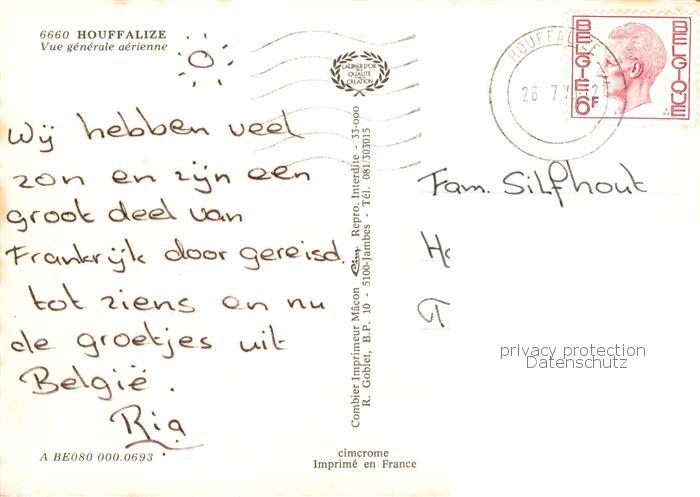 6660 HOUFFALIZE
Vue générale aérienne
LAURIER D'OR
DE LA
QUALITÉ
CREATION
HOUFFALIZE
26 7
BELGIE
BELGIQUE
6F
Wij hebben veel
zon en zijn een
groot deel van
Frankrijk door gereisd.
tot ziens en nu
de groetjes uit
België.
Ria
Combier Imprimeur Mâcon Cim Repro. Interdite - 33-000
R. Goblet, B.P. 10 - 5100-Jambes - Tél. 081/303015
Fam. Silfhout
H
T
privacy protection
Datenschutz
A BE080 000.0693
cimcrome
Imprimé en France